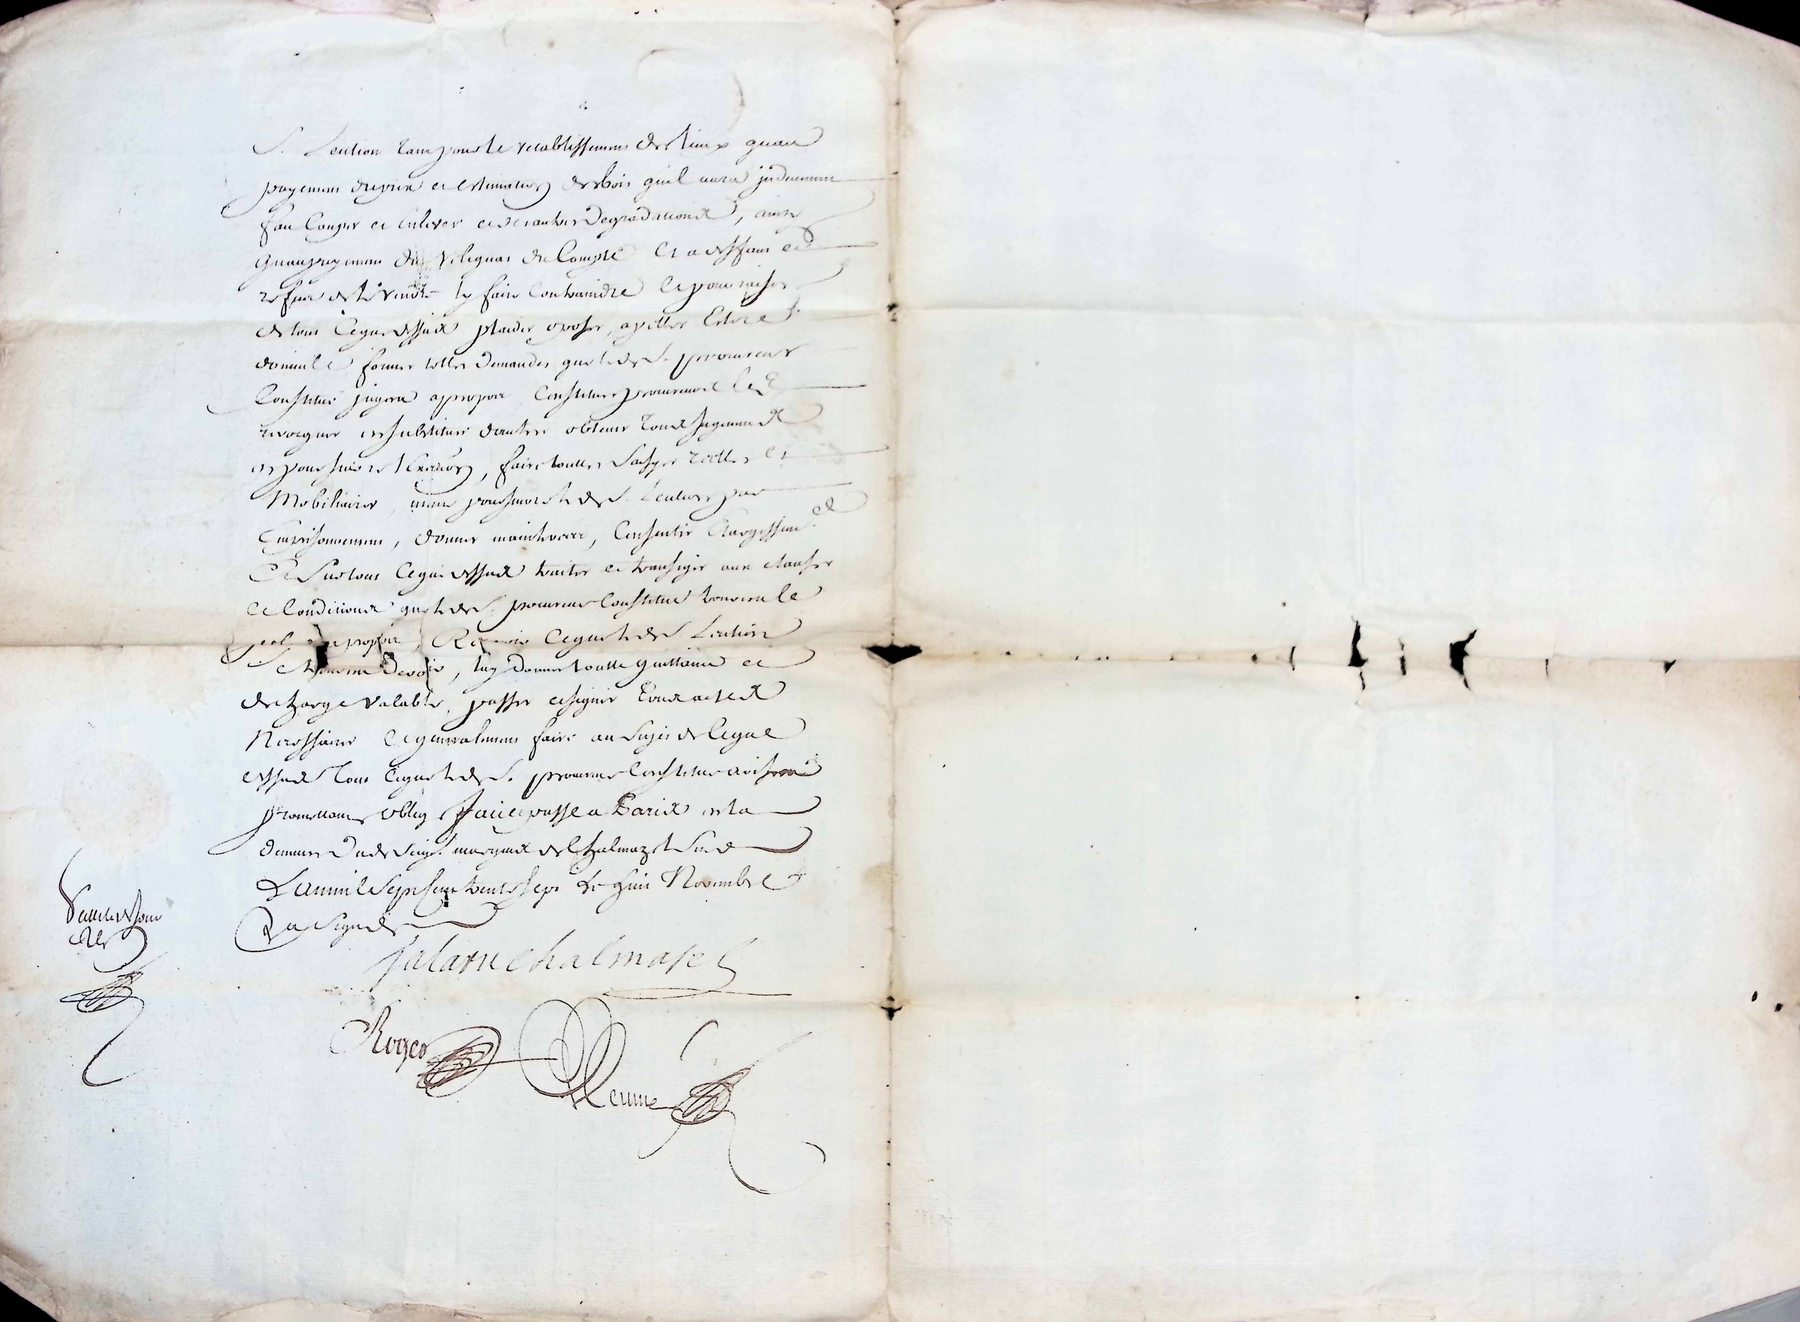 S. Leulion tam pour le retablissement des lieux quau
payement du prix et estimation des bois quil aura induement
fait Couper et enlever et des autres Degradations, ainsy
quau payement du reliquat de Compte Et a deffaut et
refus de le rendre ly faire Contraindre Et pour raison
de tout Ceque dessus plaider oposer, apeller Eslire
domicile former telles Demandes que ledt S. procureur
Constitué jugera apropos Constituer procureurs Les
revoquer en substituer dautres obtenir Tous Jugements
en poursuivre lExecution, faire touttes Saisyes reelles et
Mobiliaires, meme poursuivre ledt S. Leulion par
Emprisonnement, donner mainlevées, Consentir Elargissemt. et
Et Sur tout Ceque dessus traiter et transiger aux clauses
et Conditions que ledt S. procureur Constitué trouvera le
plus apropos, Recevoir Ceque ledt S. Leulion
se trouvera Devoir, luy donner toutte quittance et
decharge valable, passer et signer Tous actes
Necessaires et generalement faire au Sujet de Ceque
dessus Tout Ceque ledt S. procureur Constitué avisera
promettant obligt. fait et passé a Paris en la
demeure Dudt Seigr. marquis de Chalmazel Susd
Lan mil Sept cent trente sept Le huit Novembre
Et a Signé
Talaru Chalmasel
Scellé led. jour
Roger
Meunie